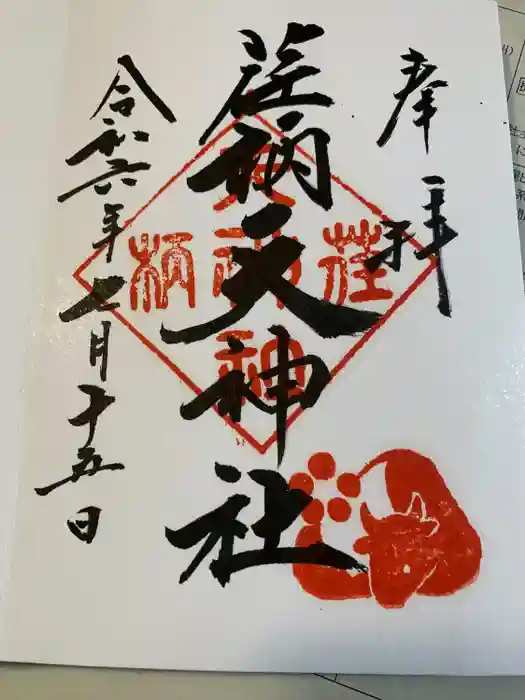 奉拝
荏柄天神社
令和六年七月十五日
荏
天
神
柄
神